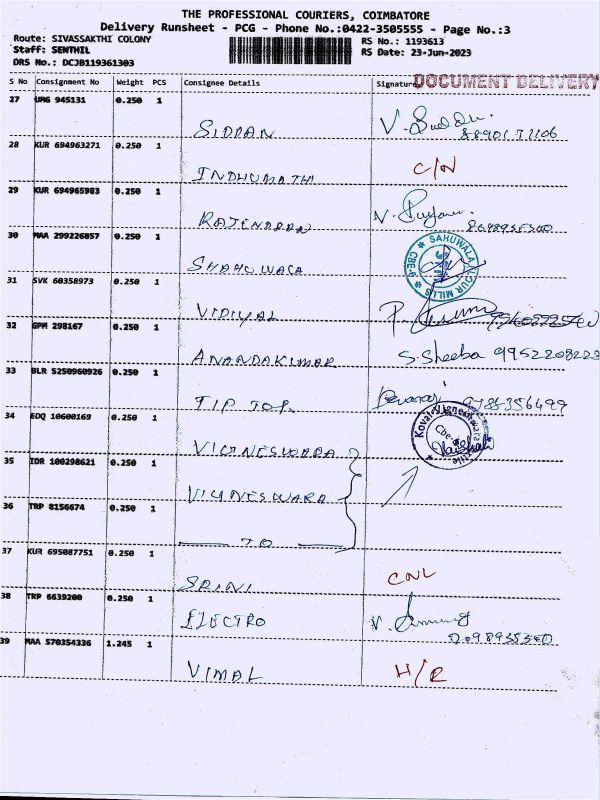 THE PROFESSIONAL COURIERS, COIMBATORE
Delivery Runsheet - PCG - Phone No.:0422-3505555 - Page No.:3
Route: SIVASSAKTHI COLONY RS No.: 1193613
Staff: SENTHIL RS Date: 23-Jun-2023
DRS No.: DCJB119361303
S No Consignment No Weight PCS Consignee Details Signature DOCUMENT DELIVERY
27 UMG 945131 0.250 1
SIDDAN V.
28 KUR 694963271 0.250 1
INDHUMATHI C/N
29 KUR 694965983 0.250 1
RAJENDRAN V.
30 MAA 299226857 0.250 1
SHAHUWALA SAHUWALA FLOUR MILLS CBE-6
31 SVK 60358973 0.250 1
VIDIYAL P.
32 GPM 298167 0.250 1
ANANDAKUMAR S. Sheeba 9952208223
33 BLR 5250960926 0.250 1
TIP TOP Devaraj 9788356499
34 EDQ 10600169 0.250 1
VIGNESWARA Kovai Vigneshwara Cbe-6
35 IDR 100298621 0.250 1
VIGNESWARA
36 TRP 8156674 0.250 1
TO
37 KUR 695087751 0.250 1
SRINI CNL
38 TRP 6639200 0.250 1
ELECTRO V.
39 MAA 570354336 1.245 1
VIMAL H/R